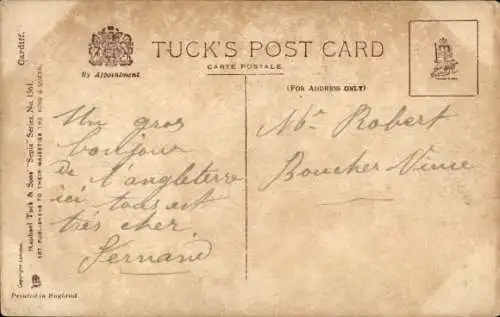 TUCK'S POST CARD
CARTE POSTALE
By Appointment
(FOR ADDRESS ONLY)
Un gros
bonjour
de l'angleterre
ici tous est
très cher
Fernand
Mr Robert
Boucher
Cardiff.
Raphael Tuck & Sons' "Sepia" Series, No. 1361
ART PUBLISHERS TO THEIR MAJESTIES THE KING & QUEEN.
Printed in England